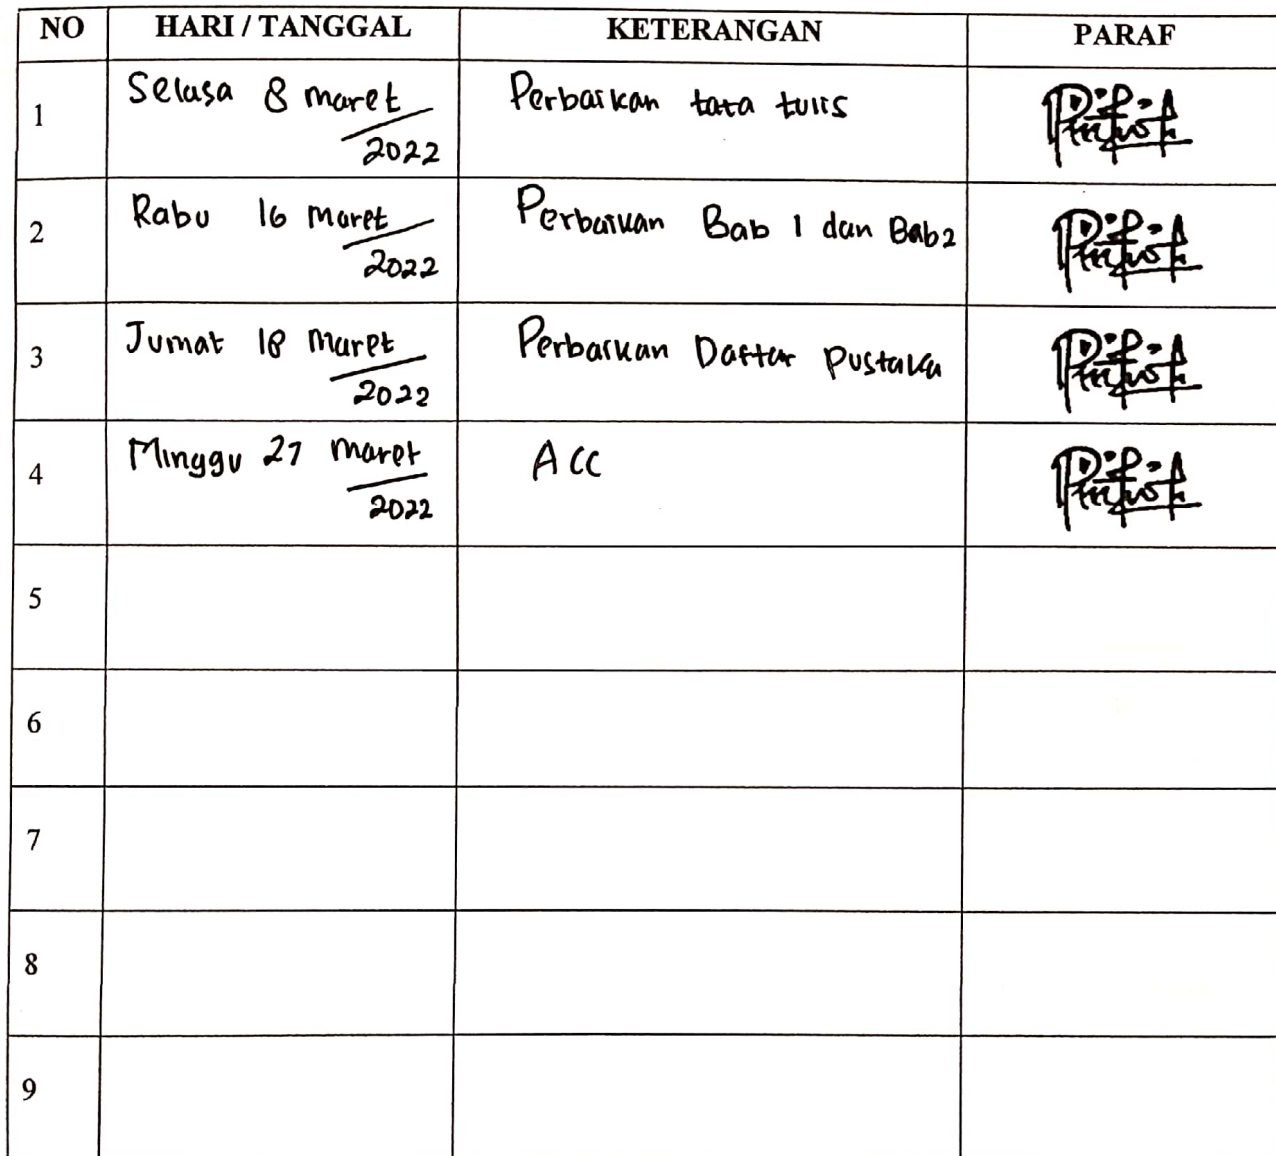 NO HARI / TANGGAL KETERANGAN PARAF
1 Selasa 8 maret Perbaikan tata tulis
2022
2 Rabu 16 Maret Perbaikan Bab 1 dan Bab2
2022
3 Jumat 18 Maret Perbaikan Daftar Pustaka
2022
4 Minggu 27 Maret ACC
2022
5
6
7
8
9